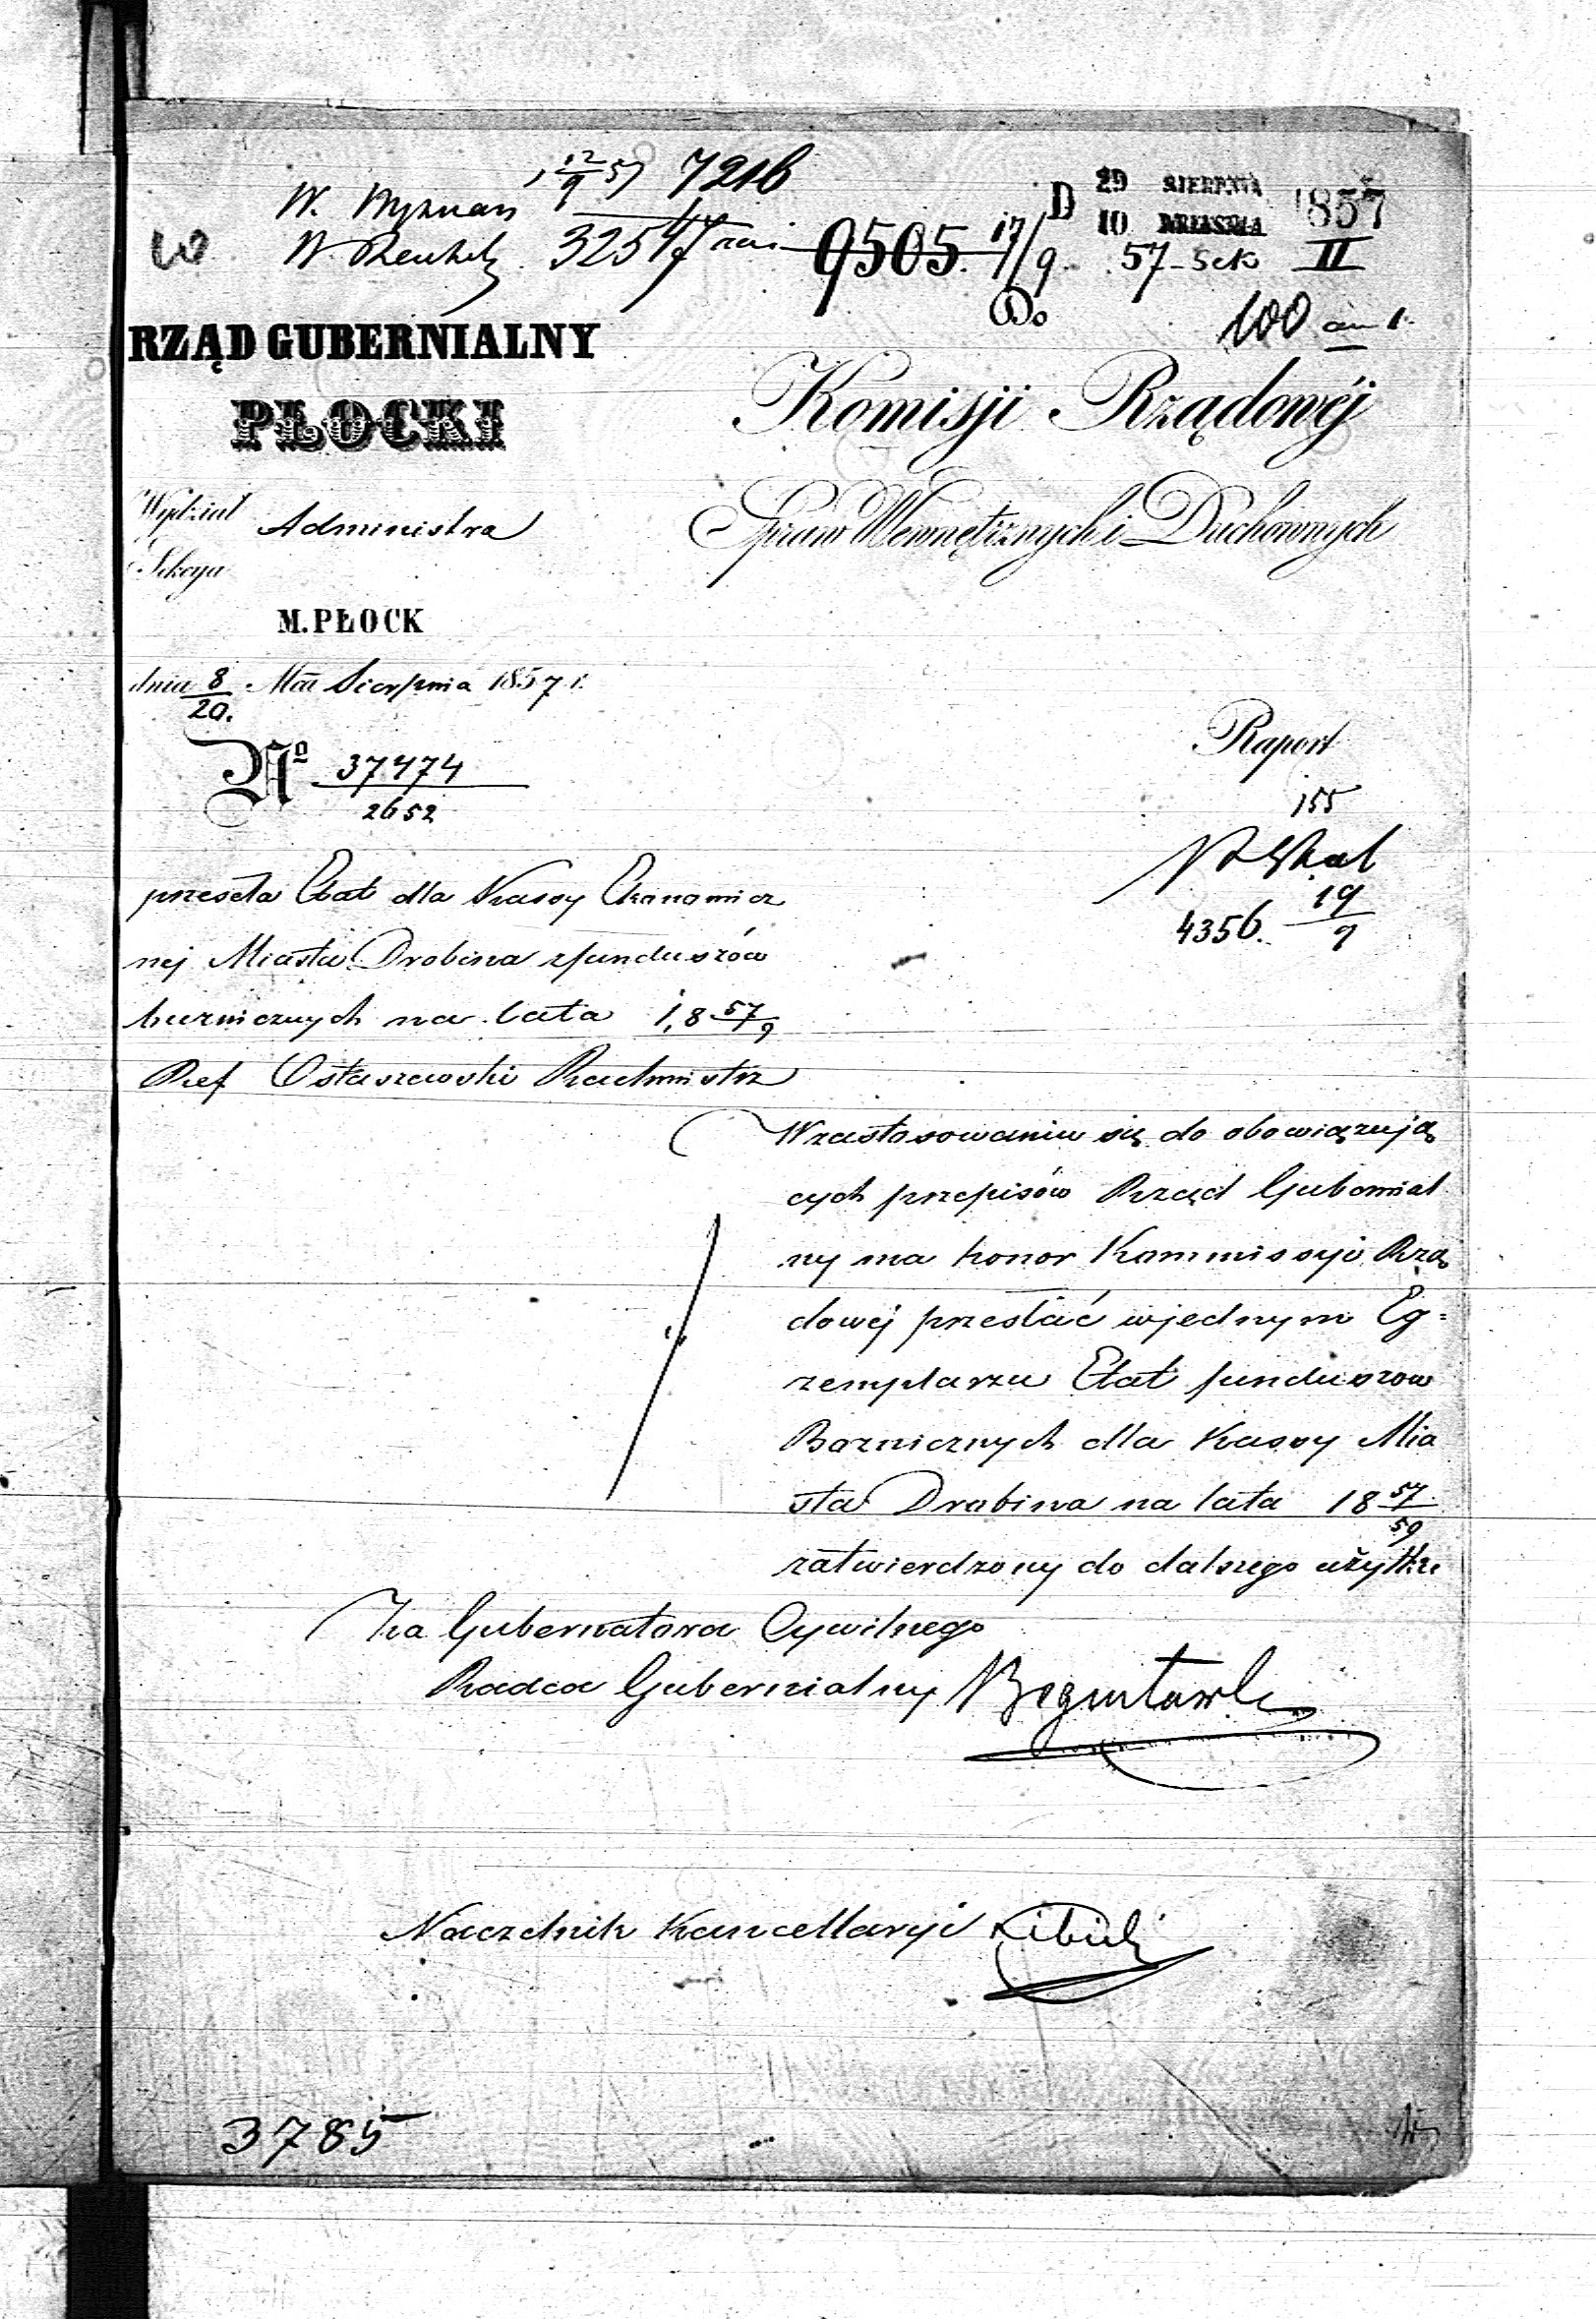 12/9 57 7216
W. Wyznań
3254 17/9
9505. 17/9 57 - Sek II
D 29 SIERPNIA 1857
10 WRZEŚNIA
Do
100
RZĄD GUBERNIALNY
PŁOCKI
Komisji Rządowéj
Spraw Wewnętrznych i Duchownych
Wydział Administra
Sekcya
M. PŁOCK
dnia 8/20. Mca Sierpnia 1857 r.
Nº 37474/2652
Raport
155
4356. 19/9
przeseła Etat dla Kassy Ekonomicz
nej Miasta Drobina z funduszów
bużnicznych na lata 1,857/9
Ref Ostaszewski Rachmistrz
W zastosowaniu się do obowiązują
cych przepisów Rząd Gubernial
ny ma honor Kommissyi Rzą
dowej przesłać w jednym Eg=
zemplarzu Etat funduszow
Bożnicznych dla Kassy Mia
sta Drobina na lata 18 57/59
zatwierdzony do dalszego użytku
Za Gubernatora Cywilnego
Radca Gubernialny
Naczelnik Kancellaryi
3785